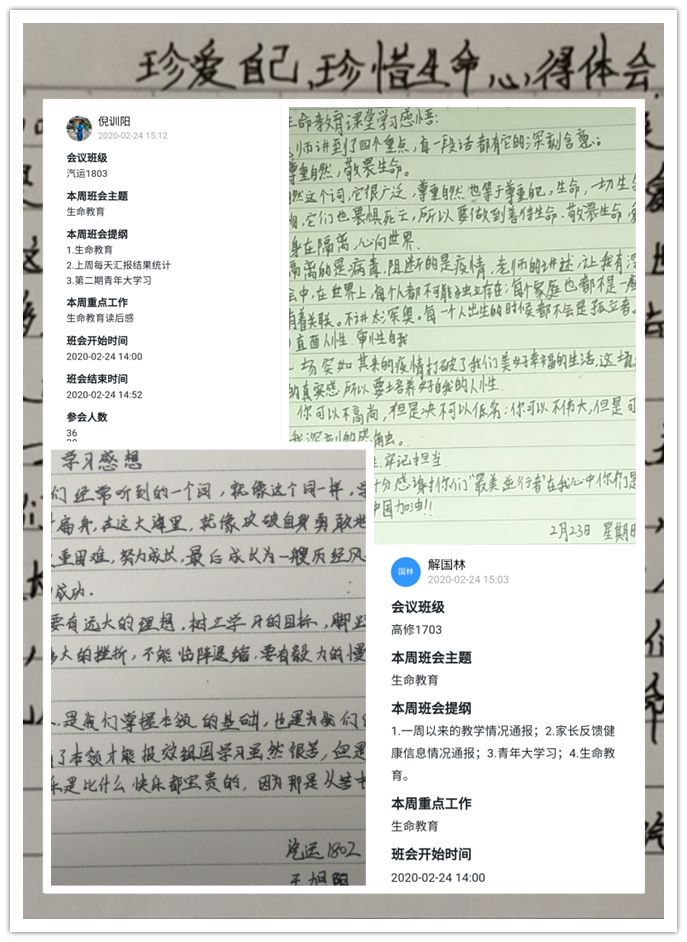 珍爱自己、珍惜生命心得体会
倪训阳
2020-02-24 15:12
会议班级
汽运1803
本周班会主题
生命教育
本周班会提纲
1.生命教育
2.上周每天汇报结果统计
3.第二期青年大学习
本周重点工作
生命教育读后感
班会开始时间
2020-02-24 14:00
班会结束时间
2020-02-24 14:52
参会人数
36
生命教育课堂学习感悟:
师讲到了四个重点,每一段话都有它的深刻含意。
尊重自然,敬畏生命。
然这个词,它很广泛,尊重自然也等于尊重自己,生命,一切生
相,它们也畏惧死亡,所以要做到善待生命、敬畏生命,
身在隔离,心向世界.
隔离的是病毒,阻断的是疫情,老师的讲述,让我有深
会中,在世界上,每个人都不可能独立存在,每个家庭也都不是一座
有着关联。不讲太深奥。每一个人出生的时候都不会是孤立者。
直面人性.审性自我
一场突如其来的疫情打破了我们美好幸福的生活,这场
的真实感,所以要培养好自我的人性.
你可以不高尚,但是决不可以低劣;你可以不伟大,但是可
我深刻的感触。
牢记担当.
十分感谢你们"最美逆行者"在我心中你们是
中国加油!!
2月23日 星期日
学习感想
们经常听到的一个词,就像这个词一样,
扁舟,在这大海里,就像突破自身勇敢地
重困难,努力成长,最后成长为一艘历经风
成功.
要有远大的理想,树立学习的目标,脚踏
大的挫折,不能临阵退缩,要有毅力的慢
是我们掌握本领的基础,也是为我们
了本领才能报效祖国学习虽然很苦,但是
乐是比什么快乐都宝贵的,因为那是从苦中
汽运1802
王旭阳
国林
解国林
2020-02-24 15:03
会议班级
高修1703
本周班会主题
生命教育
本周班会提纲
1.一周以来的教学情况通报;2.家长反馈健
康信息情况通报;3.青年大学习;4.生命教
育。
本周重点工作
生命教育
班会开始时间
2020-02-24 14:00